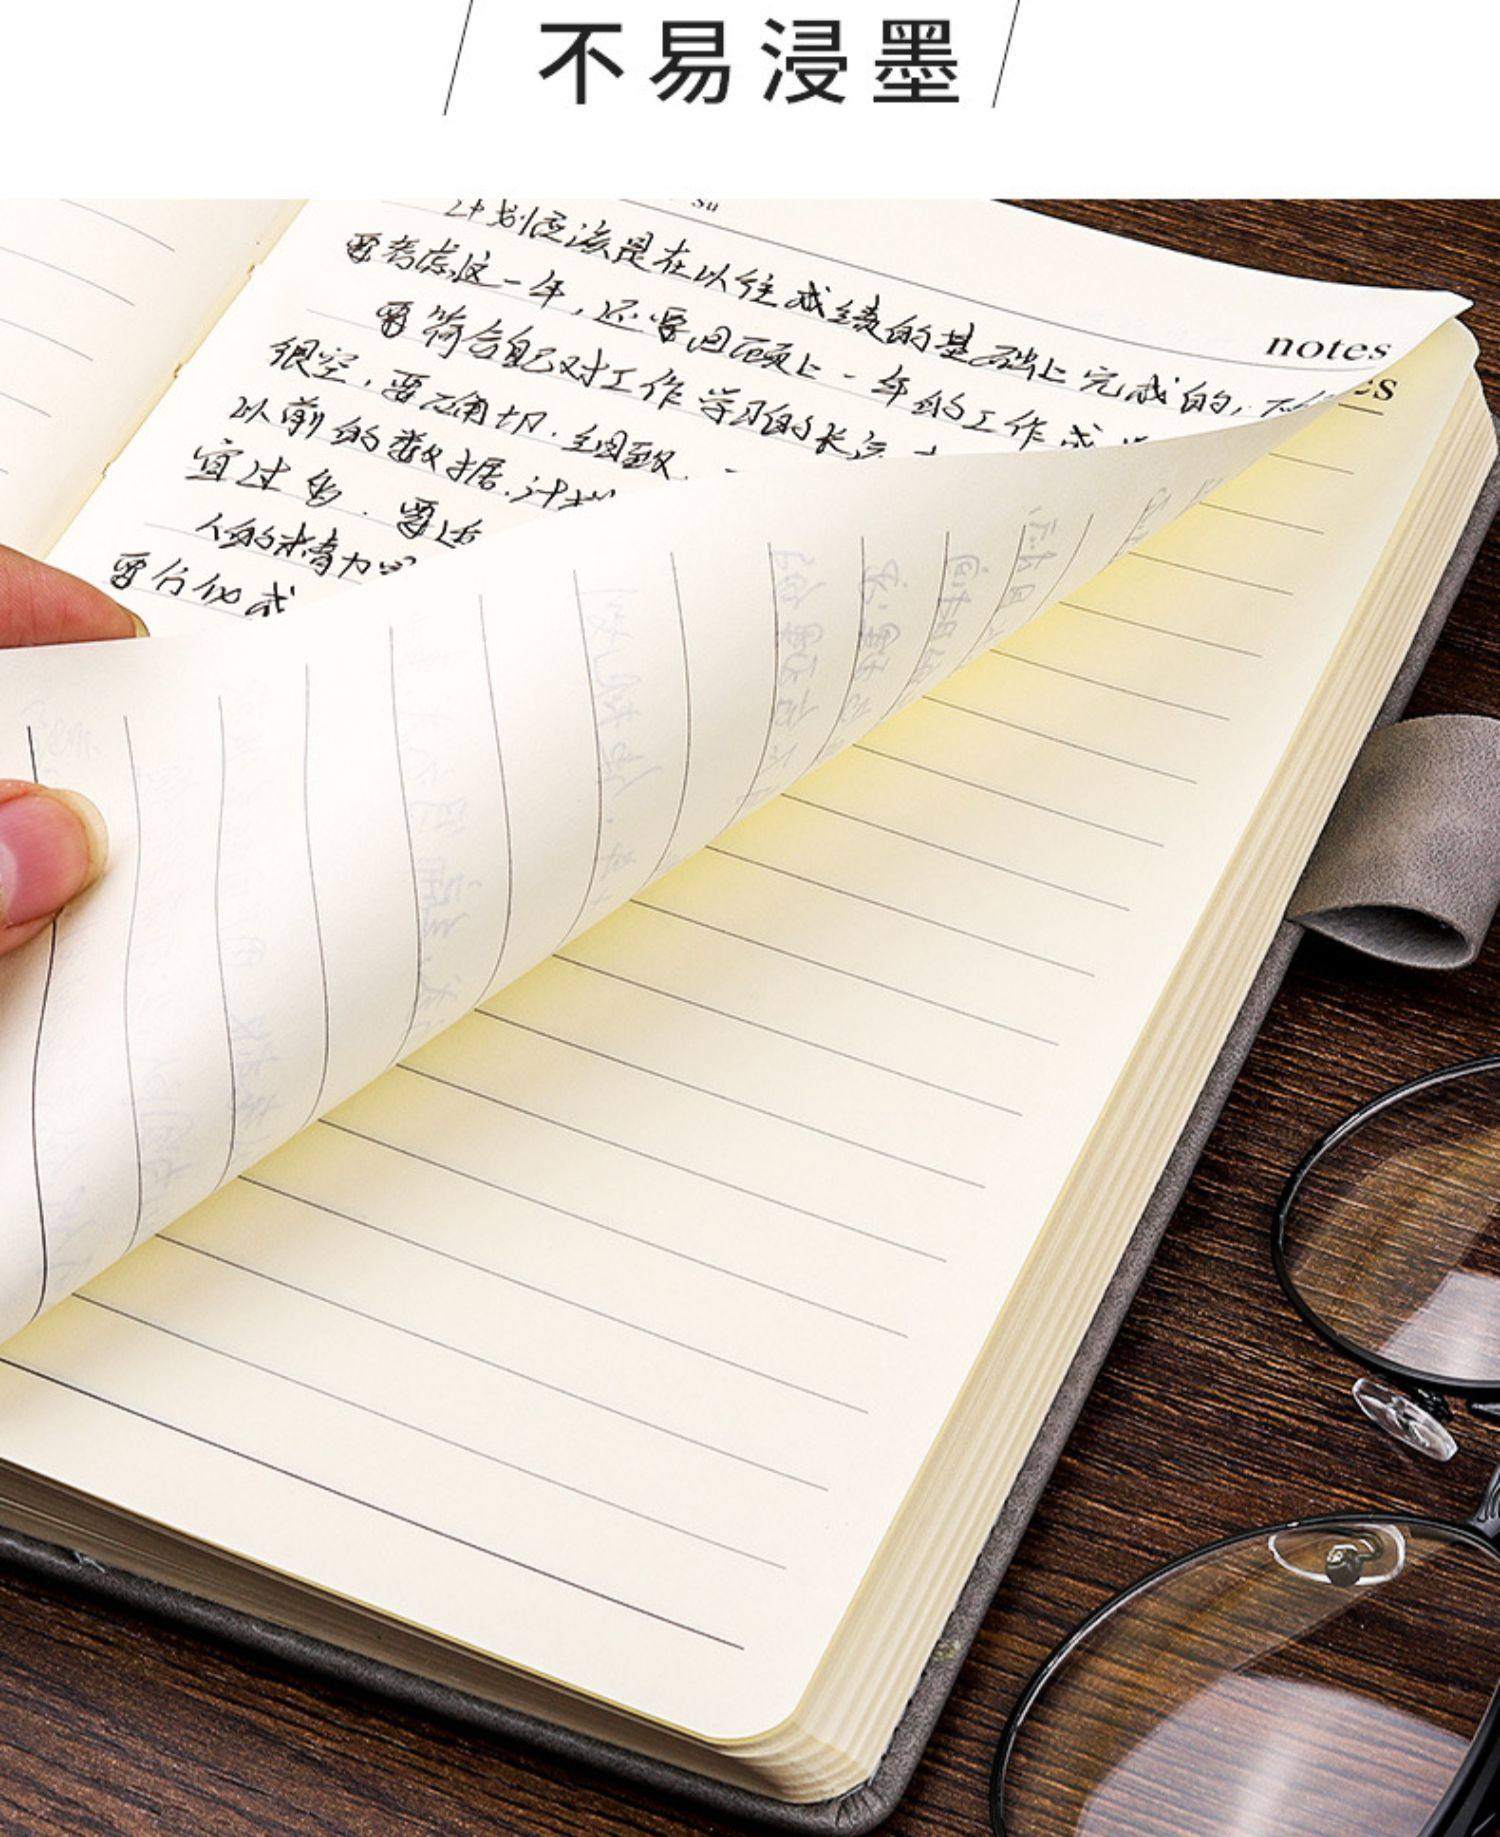 不易浸墨
su
notes
es
计划应该是在以往成绩的基础上完成的,不
要考虑这一年,还要回顾上一年的工作成
要符合自己对工作学习的长
很空,要确切.细致.
以前的数据.计划
宜过多.要适
人的精力
要行